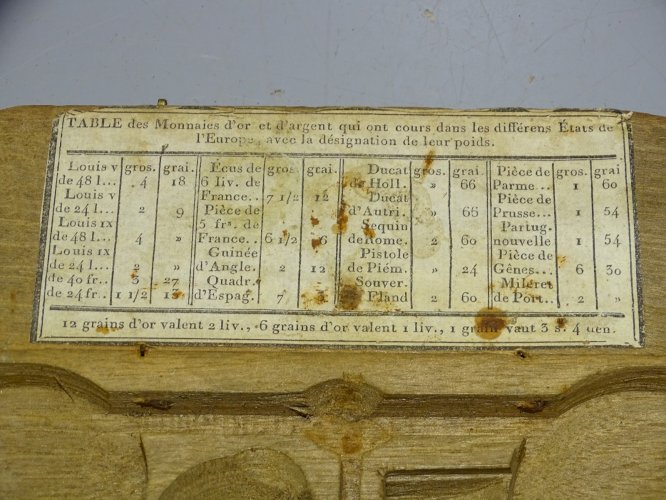 TABLE des Monnaies d'or et d'argent qui ont cours dans les différens États de
l'Europe, avec la désignation de leur poids.
Louis v gros. grai.
de 48 l... 4 18
Louis v
de 24 l... 2 9
Louis ix
de 48 l... 4 »
Louis ix
de 24 l... 2 »
de 40 fr.. 3 27
de 24 fr.. 1 1/2
Écus de gros. grai.
6 liv. de
France.. 7 1/2 12
Pièce de
5 frs. de
France.. 6 1/2
Guinée
d'Angle. 2 12
Quadr.
d'Espag. 7
Ducat gros. grai.
de Holl. » 66
Ducat
d'Autri. » 66
Sequin
de Rome. 2 60
Pistole
de Piém. » 24
Souver.
Fland 2 60
Pièce de gros. grai
Parme.. 1 60
Pièce de
Prusse... 1 54
Partug.
nouvelle 1 54
Pièce de
Gênes... 6 30
Milcret
de Port.. 2 »
12 grains d'or valent 2 liv., 6 grains d'or valent 1 liv., 1 grain vaut 3 s. 4 den.